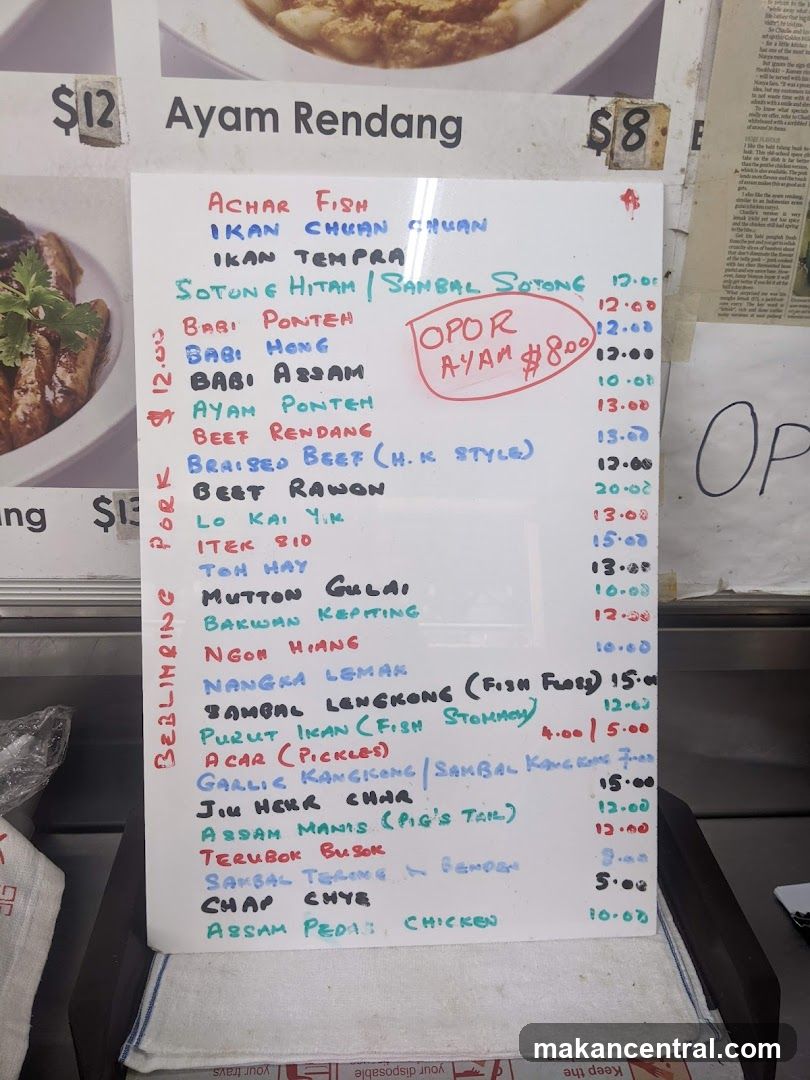 $12
Ayam Rendang
$8
ACHAR FISH
IKAN CHUAN CHUAN
IKAN TEMPRA
SOTONG HITAM / SAMBAL SOTONG 12.00
BABI PONTEH 12.00
BABI HONG 12.00
BABI ASSAM 12.00
AYAM PONTEH 10.00
BEEF RENDANG 13.00
BRAISED BEEF (H.K STYLE) 13.00
BEEF RAWON 12.00
LO KAI YIK 20.00
ITEK SIO 13.00
TOH HAY 15.00
MUTTON GULAI 13.00
BAKWAN KEPITING 10.00
NGOH HIANG 12.00
NANGKA LEMAK 10.00
SAMBAL LENGKONG (FISH FLOSS) 15.00
PURUT IKAN (FISH STOMACH) 12.00
ACAR (PICKLES) 4.00 / 5.00
GARLIC KANGKONG / SAMBAL KANGKONG 7.00
JIU HEKR CHAR 15.00
ASSAM MANIS (PIG'S TAIL) 12.00
TERUBOK BUSOK 12.00
SAMBAL TERONG
CHAP CHYE 5.00
ASSAM PEDAS CHICKEN 10.00
OPOR
AYAM $8.00
BEBLIMBING PORK $12.00
ng $13
OP
your trays
your disposable
Keep the
makancentral.com